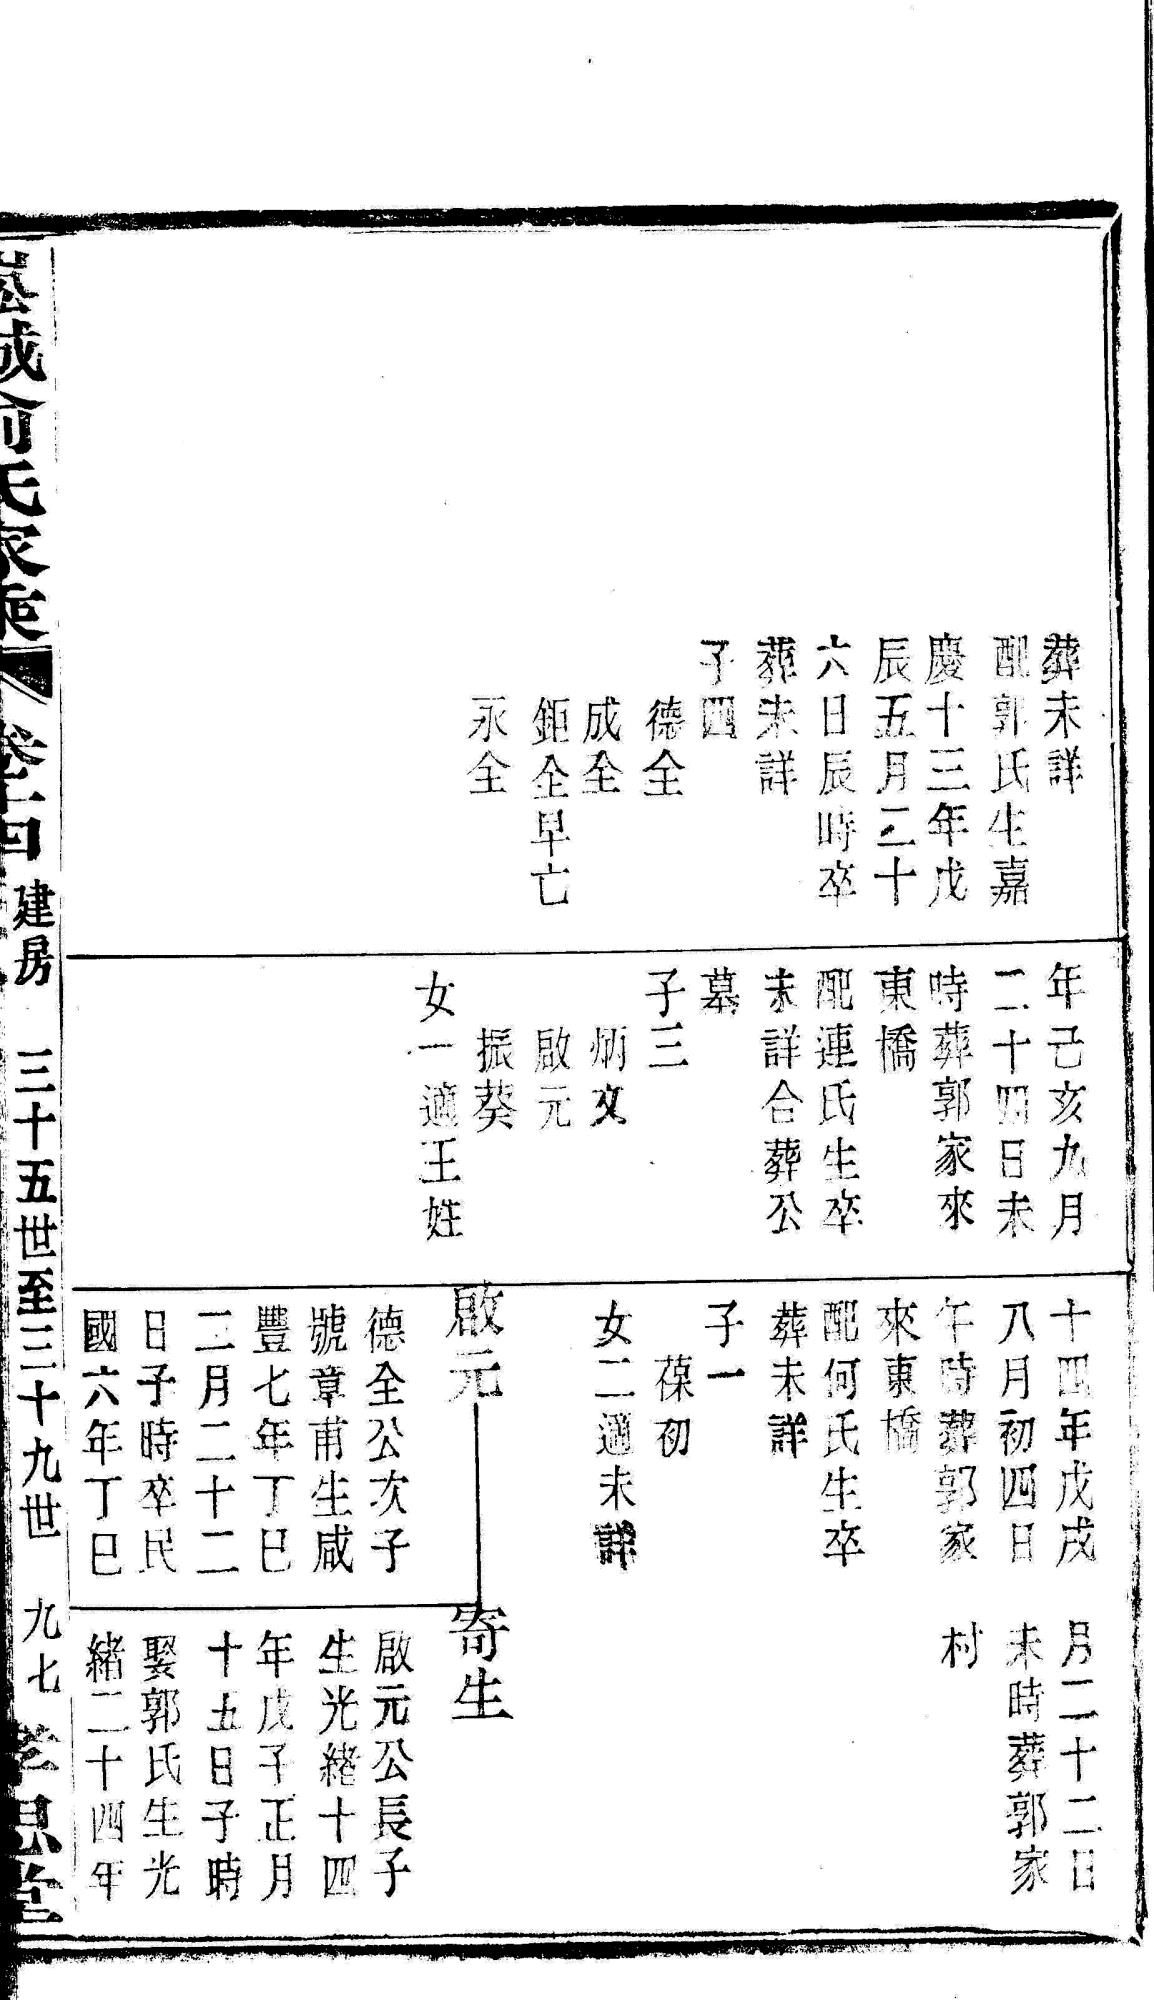 葬未詳
配郭氏生嘉
慶十三年戊
辰五月二十
六日辰時卒
葬未詳
子四
德全
成全
鉅全早亡
永全
年己亥九月
二十四日未
時葬郭家來
東橋
配連氏生卒
未詳合葬公
墓
子三
炳文
啟元
振葵
女一適王姓
十四年戊戌
八月初四日
午時葬郭家
來東橋
配何氏生卒
葬未詳
子一
葆初
女二適未詳
啟元
德全公次子
號章甫生咸
豐七年丁巳
二月二十二
日子時卒民
國六年丁巳
月二十二日
未時葬郭家
村
寄生
啟元公長子
生光緒十四
年戊子正月
十五日子時
娶郭氏生光
緒二十四年
城俞氏家乘 卷十四 建房 三十五世至三十九世 九七 孝思堂